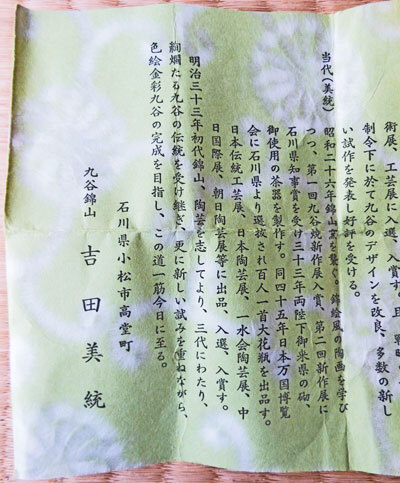 術展、工芸展に入選、入賞す。且
制令下に於て九谷のデザインを改良、多数の新し
い試作を発表し好評を受ける。
当代(美統)
昭和二十六年錦山窯を継ぐ。錦絵風の陶画を学び
つつ、第一回九谷焼新作展入賞、第二回新作展に
石川県知事賞を受け三十三年両陛下御来県の砌、
御使用の茶器を製作す。同四十五年日本万国博覧
会に石川県より選抜され百人一首大花瓶を出品す。
日本伝統工芸展、日本陶芸展、一水会陶芸展、中
日国際展、朝日陶芸展等に出品、入選、入賞す。
明治三十三年初代錦山、陶芸を志してより、三代にわたり、
絢爛たる九谷の伝統を受け継ぎ、更に新しい試みを重ねながら、
色絵金彩九谷の完成を目指し、この道一筋今日に至る。
石川県小松市高堂町
九谷錦山 吉田美統